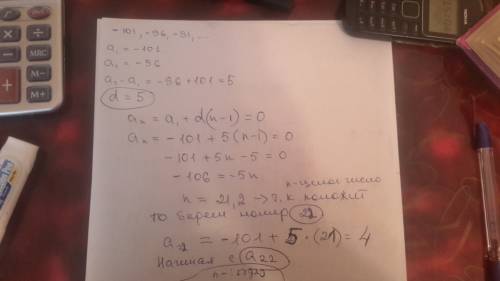 -101, -96, -91, ...
a₁ = -101
a₂ = -96
a₂ - a₁ = -96 + 101 = 5
d = 5
aₙ = a₁ + d(n-1) = 0
aₙ = -101 + 5(n-1) = 0
-101 + 5n - 5 = 0
-106 = -5n
n-целое число
n = 21,2 → т.к положит
то берем номер 22
a₂₂ = -101 + 5 · (21) = 4
Начиная с a22
MRC
M-
M+